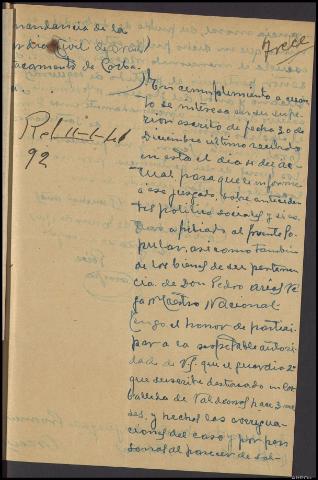 mandancia de la
Civil de
acamento de Corba
a.
Trece
Ref 11-1-41
92
En cumplimiento a cuan
to se interesa en su supe
rior escrito de fecha 30 de
Diciembre último recibido
en esta el dia 10 del ac
tual para que le informe
a ese juzgado, sobre anteceden
tes politico sociales y si es
afiliado al frente Po
pular, asi como tambien
de los bienes de ser pertenen
cia de Don Pedro Arias Ve
ga Maestro Nacional
Tengo el honor de partici
par a la respetable autori
dad de V.S. que el guardia 2º
que suscribe destacado en Cor
balleda de Valdeorras hace 3 me
ses, y hechas las averigua
ciones del caso y por per
sonas al parecer de sol-